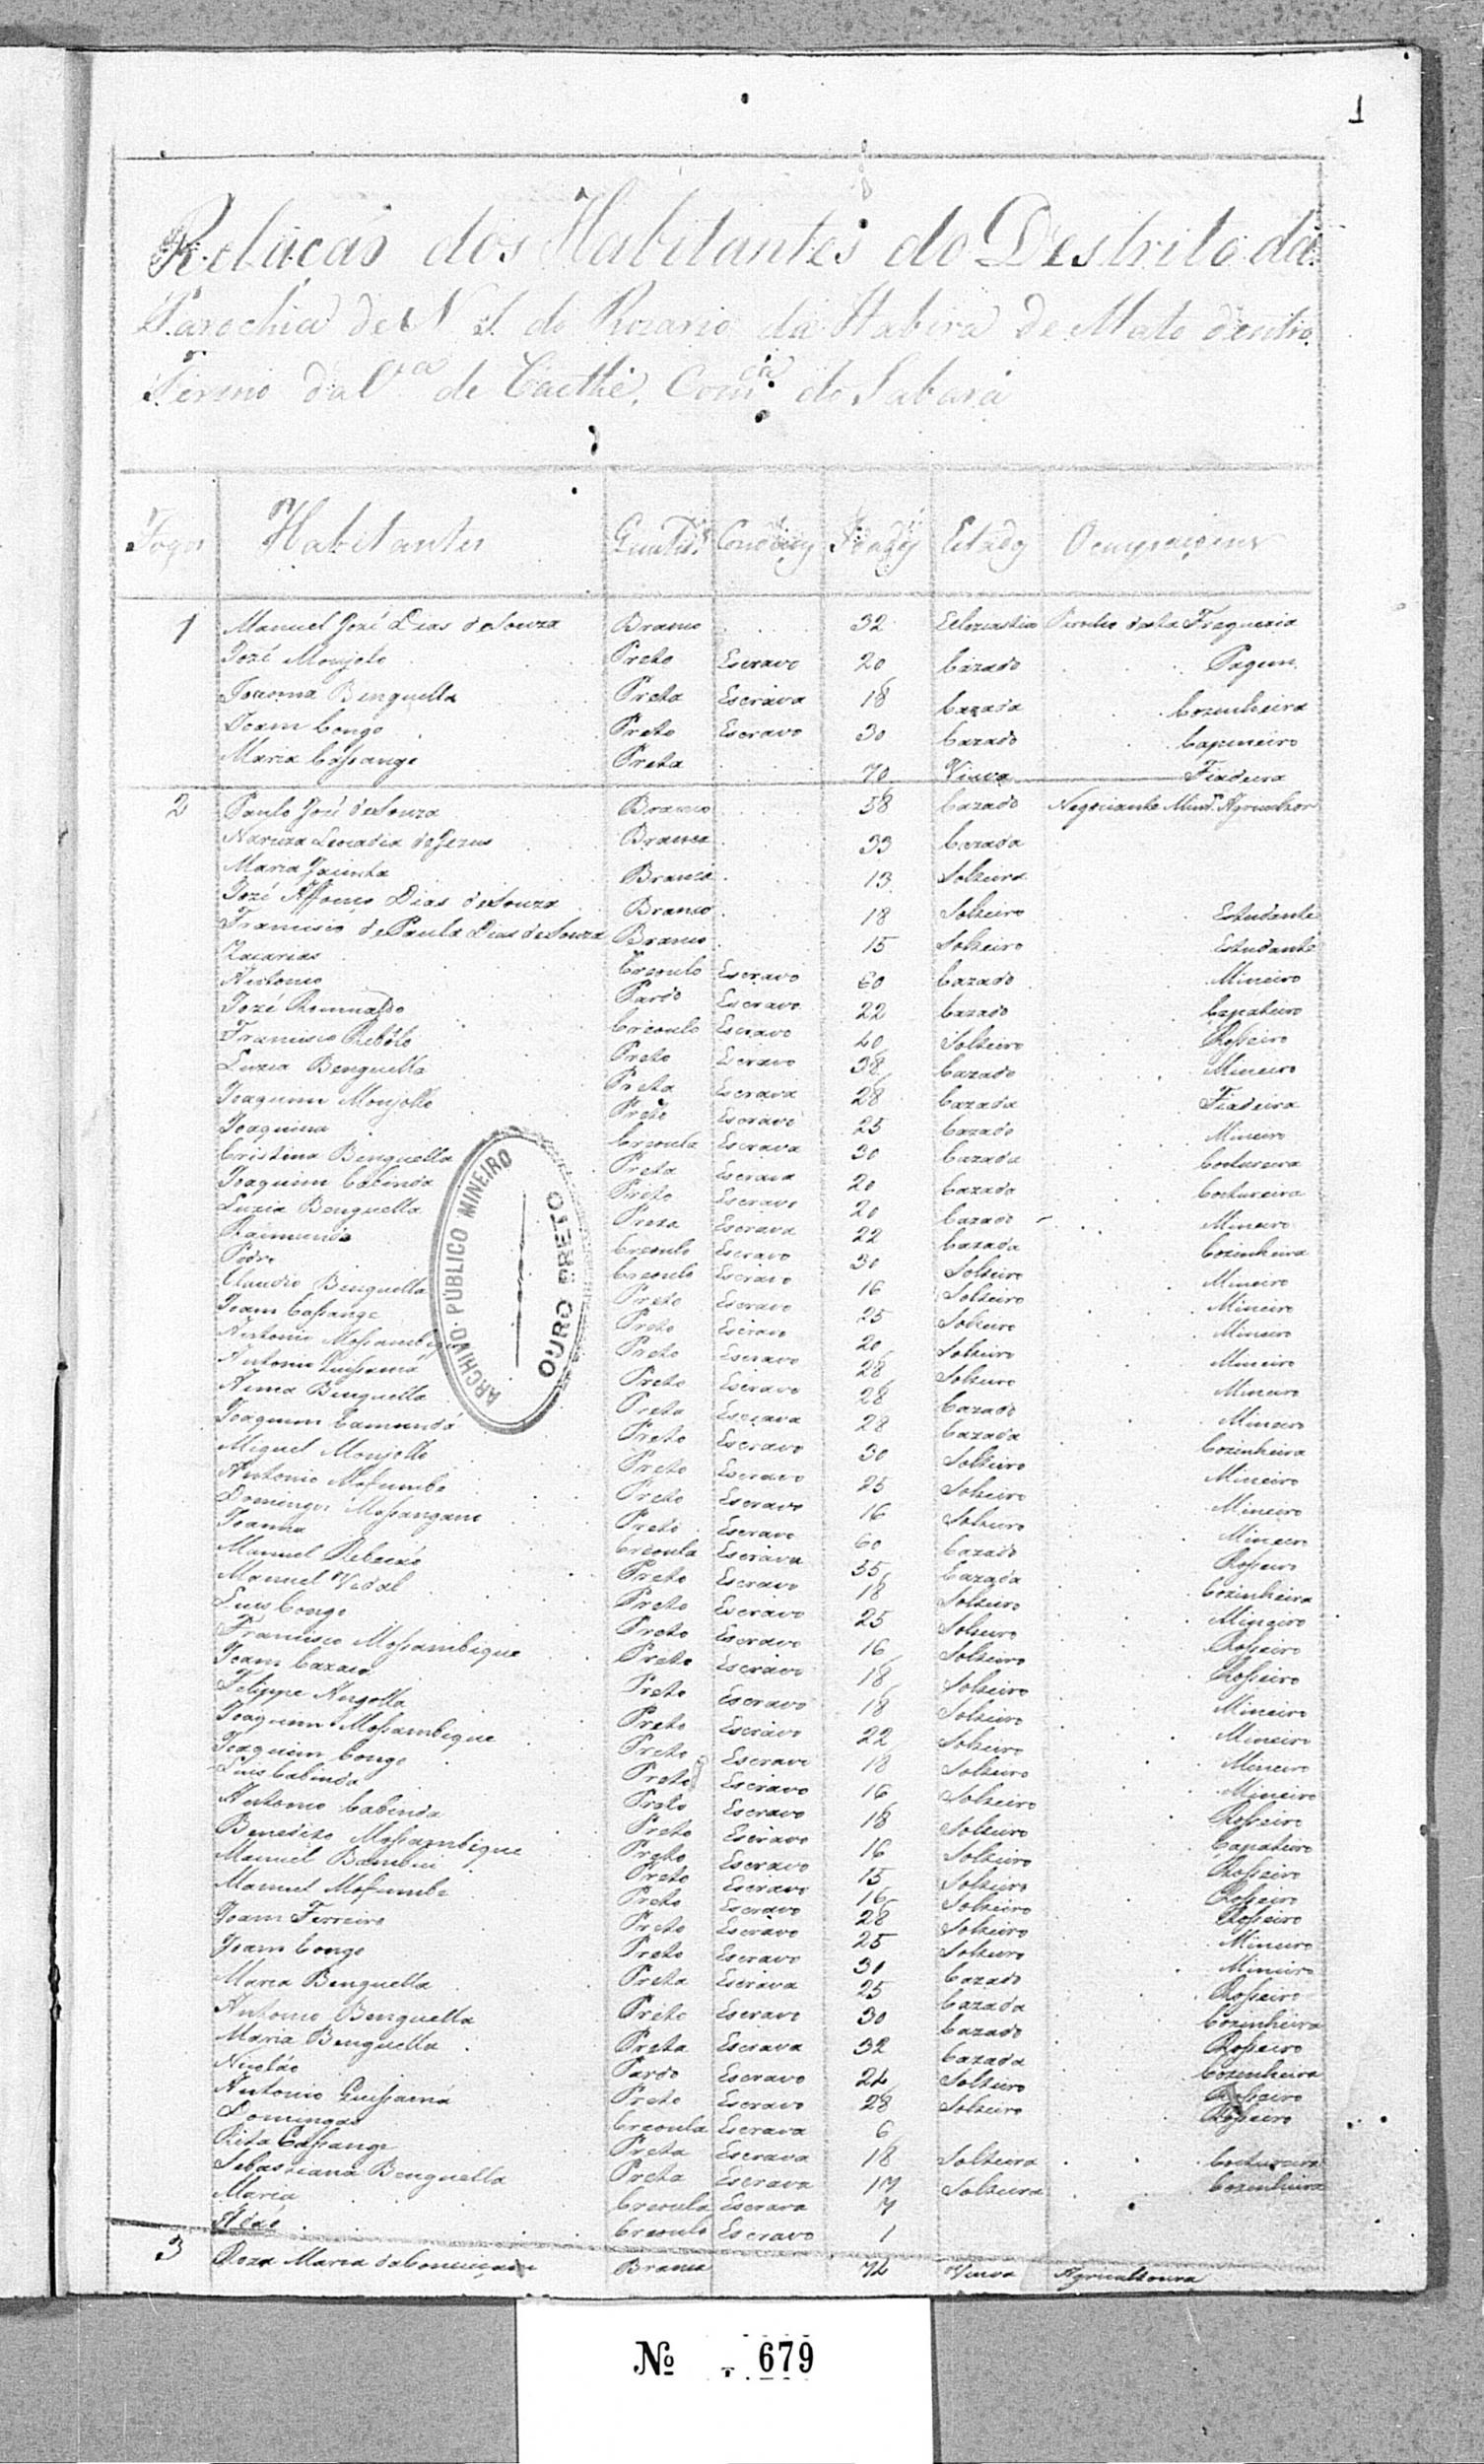 1
Relacaõ dos Habitantes do Destrito da
Parochia de N. S. do Rozario da Itabira de Mato dentro
Termo da V.ª de Caethé, Com.ca do Sabará
Fogos Habitantes Idades Estados Ocupaçoens
1 Manuel Jozé Dias de Souza Branco 32 Parocho desta Freguezia
Jozé Monjolo Preto Escravo 20 Cazado Pagem
Joanna Benguella Preta Escrava 18 Cazada Cozenheira
Joam Congo Preto Escravo 30 Cazado Capineiro
Maria Cassange Preta 70 Viuva Fiadeira
2 Paulo Jozé de Souza Branco 58 Cazado Negociante Agricultor
Leocadia de Jezus Branca 33 Cazada
Maria Jacinta Branca 13 Solteira
Jozé Affonço Dias de Souza Branco 18 Solteiro Estudante
Francisco de Paula Dias de Souza Branco 15 Solteiro Estudante
Zacarias Creoulo Escravo 60 Cazado Mineiro
Antonio Pardo Escravo 22 Cazado Çapateiro
Jozé Romualdo Creoulo Escravo 40 Solteiro Rosseiro
Francisco Rebôlo Preto Escravo 38 Cazado Mineiro
Luzia Benguella Preta Escrava 28 Cazada Fiadeira
Joaquim Monjollo Preto Escravo 25 Cazado Mineiro
Joaquina Creoula Escrava 30 Cazada Costureira
Cristina Benguella Preta Escrava 20 Cazada Costureira
Joaquim Cabinda Preto Escravo 20 Cazado Mineiro
Luzia Benguella Preta Escrava 22 Cazada Cozinheira
Raimundo Creoulo Escravo 30 Solteiro Mineiro
Pedro Creoulo Escravo 16 Solteiro Mineiro
Claudio Benguella Preto Escravo 25 Solteiro Mineiro
Joam Cassange Preto Escravo 20 Solteiro Mineiro
Antonio Mossambique Preto Escravo 28 Solteiro Mineiro
Antonio Quissamá Preto Escravo 28 Cazado Mineiro
Anna Benguella Preta Escrava 28 Cazada Cozinheira
Joaquim Camundá Preto Escravo 30 Solteiro Mineiro
Miguel Monjollo Preto Escravo 25 Solteiro Mineiro
Antonio Mofumbe Preto Escravo 16 Solteiro Mineiro
Domingos Mossangano Preto Escravo 60 Cazado Rosseiro
Joanna Creoula Escrava 55 Cazada Cozinheira
Manuel Preto Escravo 18 Solteiro Mineiro
Manuel Vidal Preto Escravo 25 Solteiro Rosseiro
Luis Congo Preto Escravo 16 Solteiro Rosseiro
Francisco Mossambique Preto Escravo 18 Solteiro Mineiro
Joam Preto Escravo 18 Solteiro Mineiro
Felippe Angolla Preto Escravo 22 Solteiro Mineiro
Joaquim Mossambique Preto Escravo 18 Solteiro Mineiro
Joaquim Congo Preto Escravo 16 Solteiro Rosseiro
Luis Cabinda Preto Escravo 18 Solteiro Çapateiro
Antonio Cabinda Preto Escravo 16 Solteiro Rosseiro
Benedito Mossambique Preto Escravo 15 Solteiro Rosseiro
Manuel Preto Escravo 16 Solteiro Rosseiro
Manuel Mofumbe Preto Escravo 28 Solteiro Mineiro
Joam Ferreiro Preto Escravo 25 Solteiro Mineiro
Joam Congo Preto Escravo 30 Cazado Rosseiro
Maria Benguella Preta Escrava 25 Cazada Cozinheira
Antonio Benguella Preto Escravo 30 Cazado Rosseiro
Maria Benguella Preta Escrava 32 Cazada Cozenheira
Nicoláo Pardo Escravo 24 Solteiro Rosseiro
Antonio Quissamá Preto Escravo 28 Solteiro Rosseiro
Domingas Creoula Escrava 6
Rita Cassange Preta Escrava 18 Solteira Costureira
Sebastiana Benguella Preta Escrava 17 Solteira Cozenheira
Maria Creoula Escrava 7
Adão Creoulo Escravo 1
3 Roza Maria da Conceiçam Branca 74 Viuva Agricultoura
ARCHIVO PUBLICO MINEIRO
OURO PRETO
Nº 679